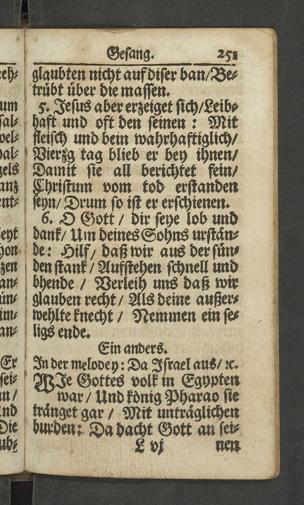 Gesang. 251
glaubten nicht auf diser ban/Be-
trübt über die massen.
5. Jesus aber erzeiget sich/Leib-
haft und oft den seinen: Mit
fleisch und bein wahrhaftiglich/
Vierzg tag blieb er bey ihnen/
Damit sie all berichtet sein/
Christum vom tod erstanden
seyn/Drum so ist er erschienen.
6. O Gott/ dir seye lob und
dank/Um deines Sohns urstän-
de: Hilf/ daß wir aus der sün-
den stank/Aufstehen schnell und
bhende/ Verleih uns daß wir
glauben recht/Als deine außer-
wehlte knecht/ Nemmen ein se-
ligs ende.
Ein anders.
In der melodey: Da Israel aus/ ꝛc.
WJe Gottes volk in Egypten
war/ Und könig Pharao sie
tränget gar/ Mit unträglichen
burden: Da dacht Gott an sei-
L vj nen